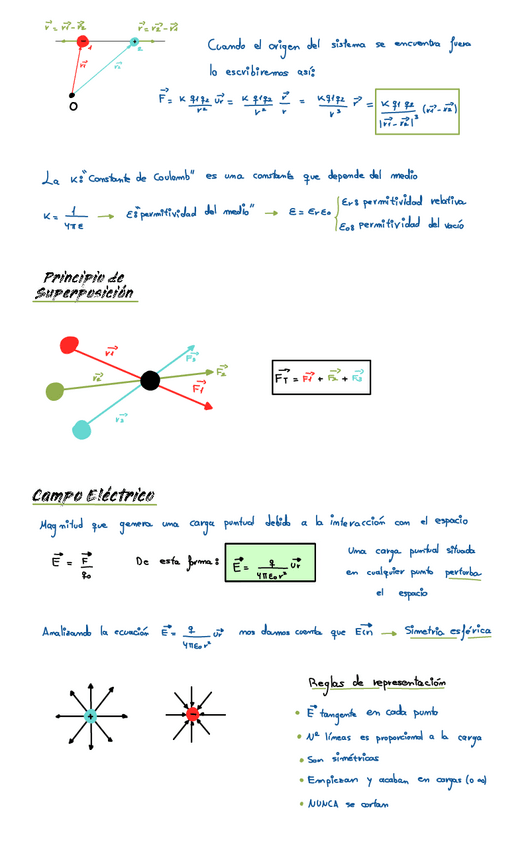 r⃗ = r⃗1-r⃗2 r⃗ = r⃗2-r⃗1
- 1 + 2
r⃗1 r⃗2
O
Cuando el origen del sistema se encuentra fuera
lo escribiremos así:
F⃗ = K q1q2/r² u⃗r = K q1q2/r² r⃗/r = K q1q2/r³ r⃗ = K q1 q2/|r⃗1-r⃗2|³ (r⃗1-r⃗2)
La K: "Constante de Coulomb" es una constante que depende del medio
K = 1/4πε → ε: "permitividad del medio" → ε = εr ε0 { εr: permitividad relativa
ε0: permitividad del vacío
Principio de
Superposición
r⃗1 F⃗3
r⃗2 F⃗2
r⃗3 F⃗1
F⃗T = F⃗1 + F⃗2 + F⃗3
Campo Eléctrico
Magnitud que genera una carga puntual debido a la interacción con el espacio
E⃗ = F⃗/q0 De esta forma: E⃗ = q/4πε0r² u⃗r
Una carga puntual situada
en cualquier punto perturba
el espacio
Analizando la ecuación E⃗ = q/4πε0r² u⃗r nos damos cuenta que E(r) → Simetría esférica
+ -
Reglas de representación
• E⃗ tangente en cada punto
• Nº líneas es proporcional a la carga
• Son simétricas
• Empiezan y acaban en cargas (o ∞)
• NUNCA se cortan